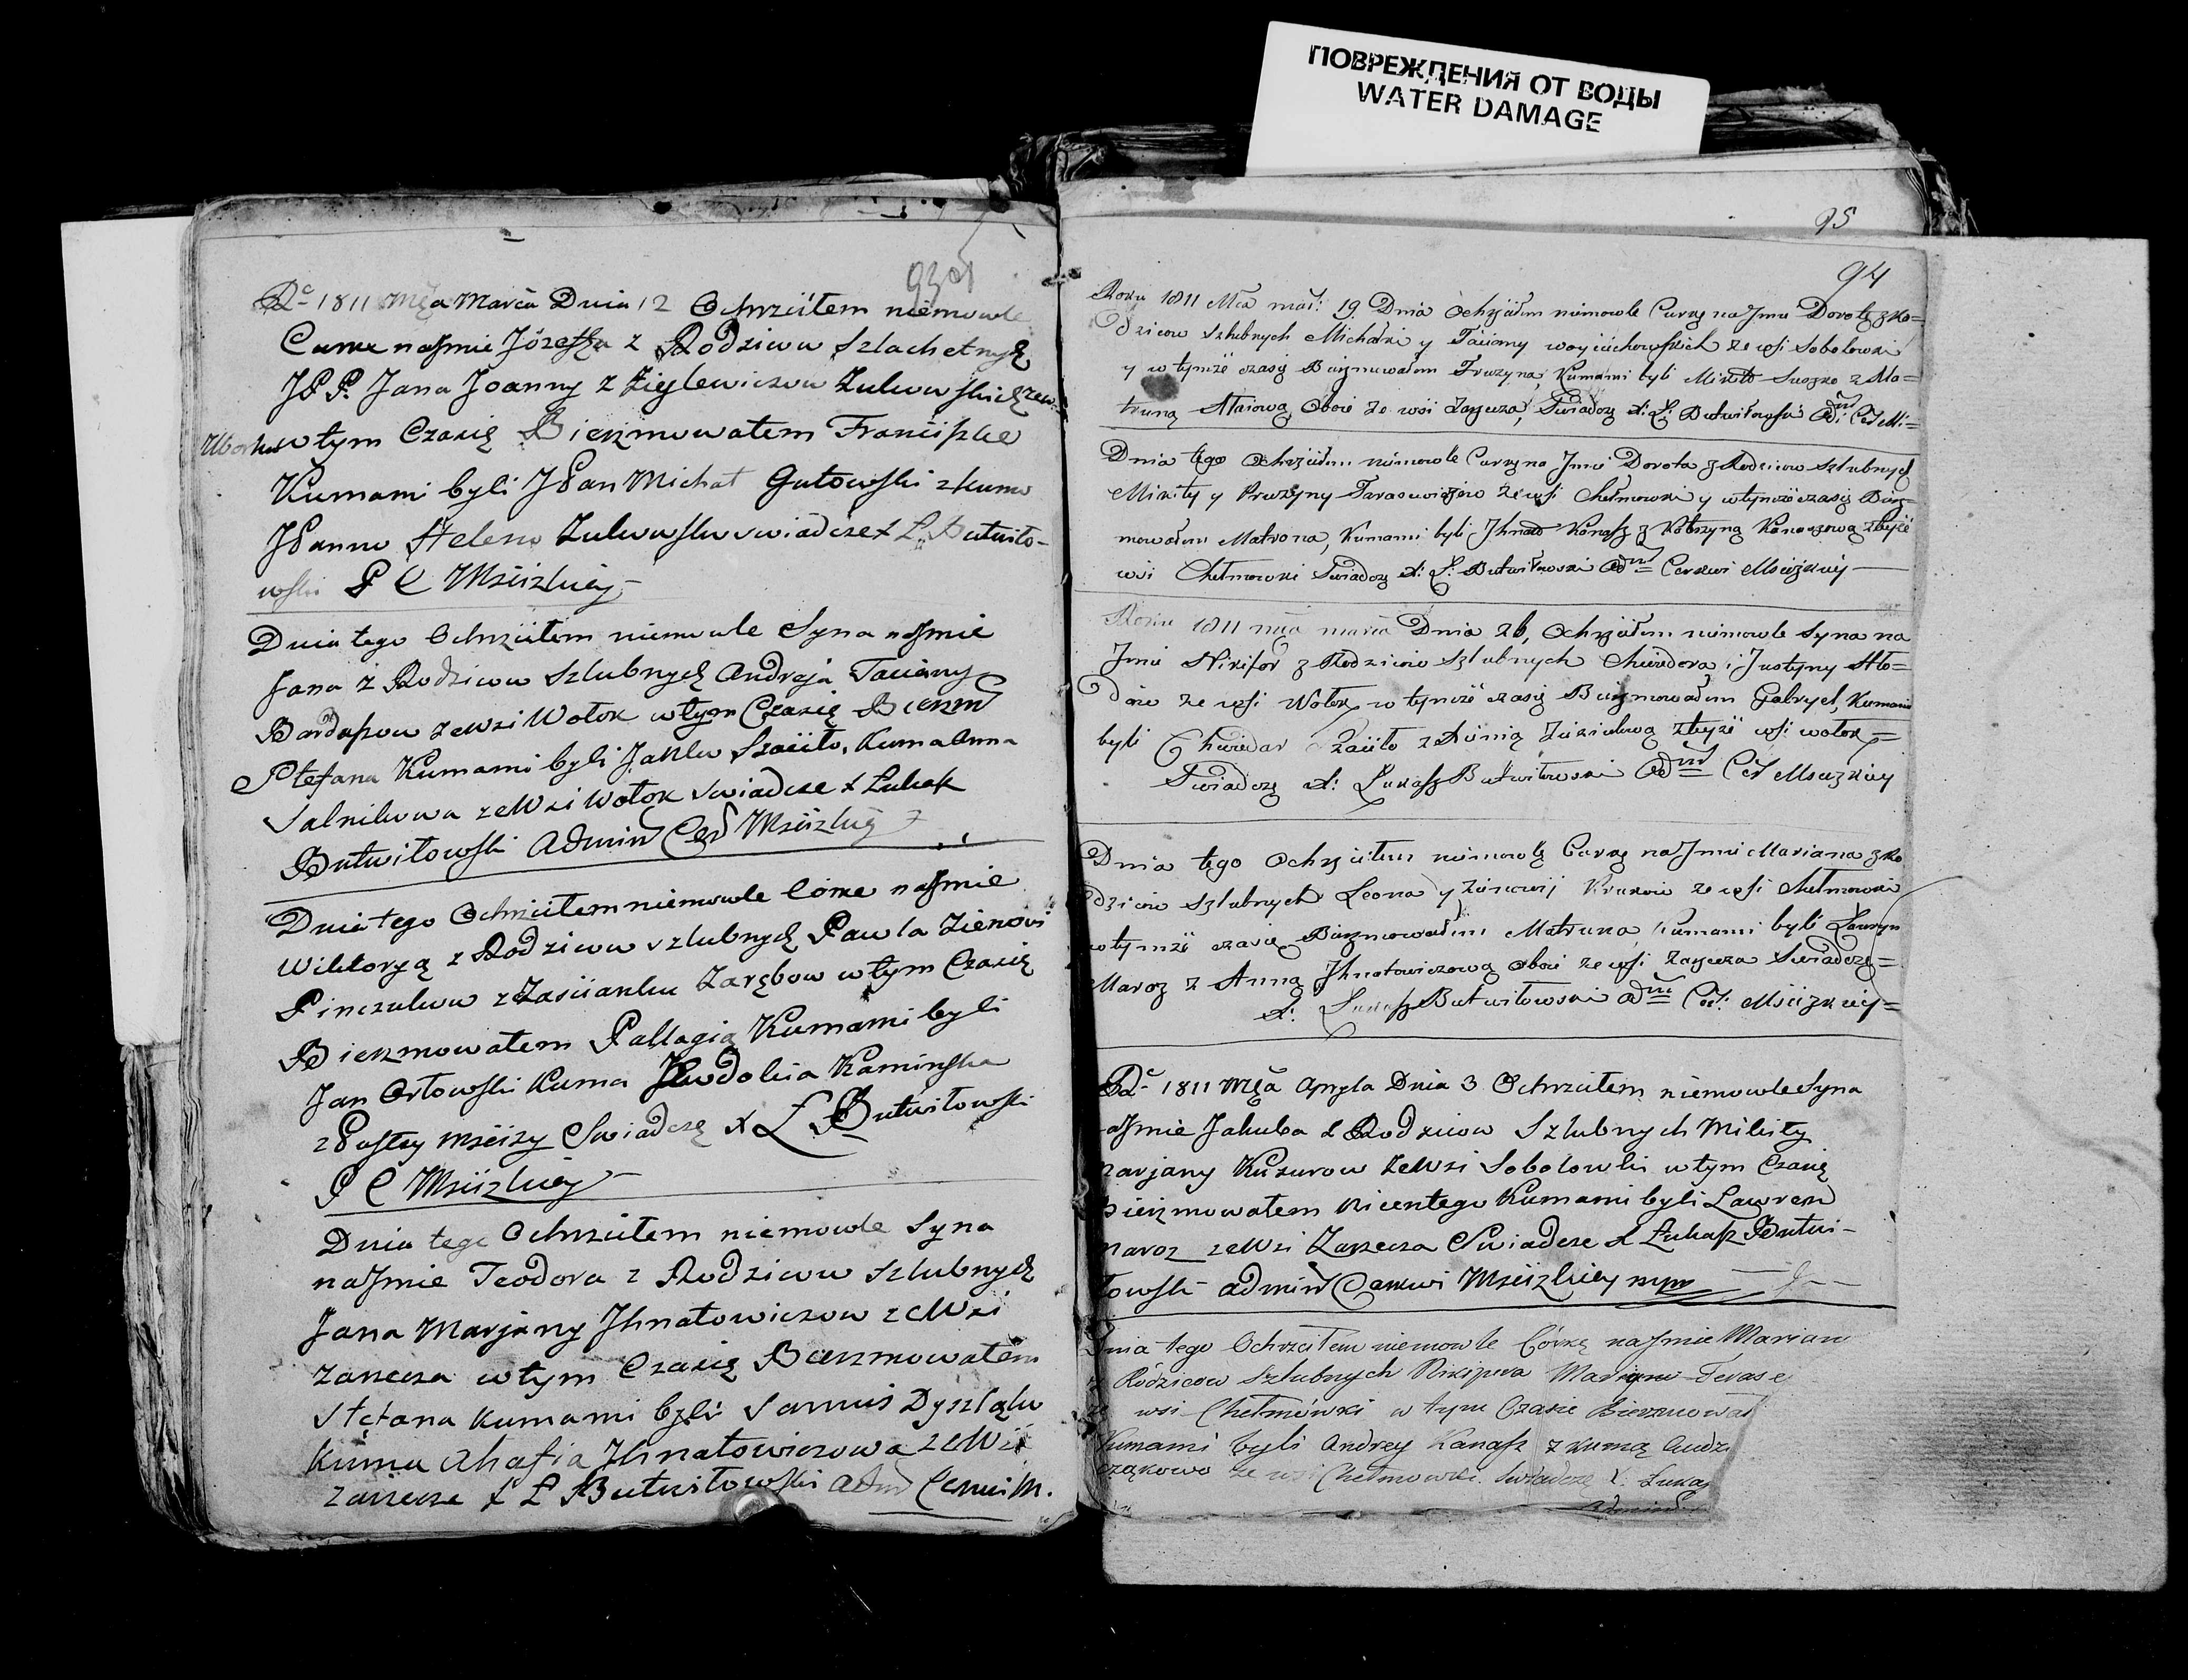 ПОВРЕЖДЕНИЯ ОТ ВОДЫ
WATER DAMAGE
93об
Rᵒ 1811 Mca Marca Dnia 12 Ochrzciłem niemowle
Curke na Jmie Józefa z Rodzicow Szlachetnych
JPP. Jana Joanny z
w tym Czasię Bierzmowatem Franciszke
Kumami byli JPan Michał Gutowski z kumo
JPanno Heleno świadcze X L. Butwiło-
wski P C Mściżkiey
Dnia tego Ochrzciłem niemowle Syna na Jmie
Jana z Rodzicow Szlubnych Andreja Tacianny
zewsi Wołok w tym Czasię Bierzm
Stefana Kumami byli Kuma Anna
zeWsi Wołok Swiadcze X Łukasz
Butwiłowski Admin Cer Mściżkiey
Dnia tego Ochrzciłem niemowle Córke na Jmie
Wiktoryą z Rodzicow szlubnych Pawła Zienowi
z Zaścianku Zarębow w tym Czasię
Bierzmowatem Pallagią Kumami byli
Jan Orłowski Kuma Kaminska
Mściży Swiadczę X Ł Butwiłowski
P C Mściżkiey
Dnia tego Ochrzciłem niemowle Syna
na Jmie Teodora z Rodzicow szlubnych
Jana Marjany Jhnatowiczow zeWsi
Zarzecza w tym Czasię Bierzmowatem
Stefana kumami byli
Kuma Ahafia Jhnatowiczowa zeWsi
Zarzecze X Ł Butwiłowski Adm Cerkwi M.
95
94
Roku 1811 Mca mar: 19 Dnia Ochrzciłem niemowle Curkę na Jmie Dorotę z Ro=
dzicow Szlubnych Michałki y Tacianny woyciechowskich ze wsi Sobolowki
y w tymże czasię Bierzmowałem Fruzyna, Kumami byli Mikita z Ma=
truną oboie ze wsi Zarzecza, Swiadczę X: Ł: Butwiłowski Adm:
Dnia tego Ochrzciłem niemowle Curkę na Jmie Dorota z Rodzicow Szlubnych
Mikity y Fruzyny Tarasewiczow ze wsi Chełmowki y w tymże czasię Bierz-
mowałem Matrona, Kumami byli Jhnat Kanasz z Kanaszową tbyże
wsi Chełmowki Swiadczę X: Ł: Butwiłowski Adm Cerkwi Mściżkiey
Roku 1811 mca marca Dnia 26, Ochrzciłem niemowle Syna na
Jmie Nikifor z Rodzicow Szlubnych Chwiedora i Justyny
ze wsi Wołok w tymże czasię Bierzmowałem Gabryel, Kumami
byli Chwiedar tbyże wsi wołok=
Swiadczę X: Łukasz Butwiłowski Adm Cer Msciżkiey
Dnia tego Ochrzciłem niemowlę Curkę na Jmie Mariana z Ro
dzicow Szlubnych Leona y Zinowij ze wsi Chełmowki
w tymże czasie Bierzmowałem Matruna, Kumami byli Lawryn
Maroz z Anną Jhnatowiczową oboie ze wsi Zarzecza Swiadczę=
X: Łukasz Butwiłowski Adm Cer: Mściżkiey=
Rᵒ 1811 Mca Apryla Dnia 3 Ochrzciłem niemowle Syna
na Jmie Jakuba z Rodzicow Szlubnych Mikity
Marjany zeWsi Sobolowki w tym Czasię
Bierzmowatem Kumami byli Lawren
Maroz zeWsi Zarzecza Swiadcze X Łukasz Butwi-
łowski admin Cerkwi Mściżkiey mpr
Dnia tego Ochrzciłem niemowle Córkę na Jmie Marian
z Rodzicow Szlubnych
wsi Chełmówki w tym Czasie Bierzmował
Kumami byli Andrey Kanasz z kumą
ze wsi Chełmowki. Swiadczę X. Łukasz